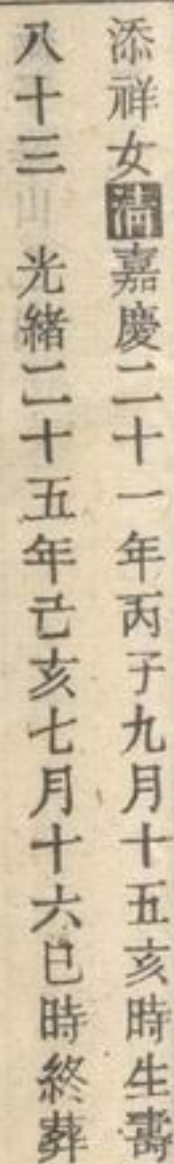 添祥女清嘉慶二十一年丙子九月十五亥時生壽
八十三 光緒二十五年己亥七月十六巳時終葬